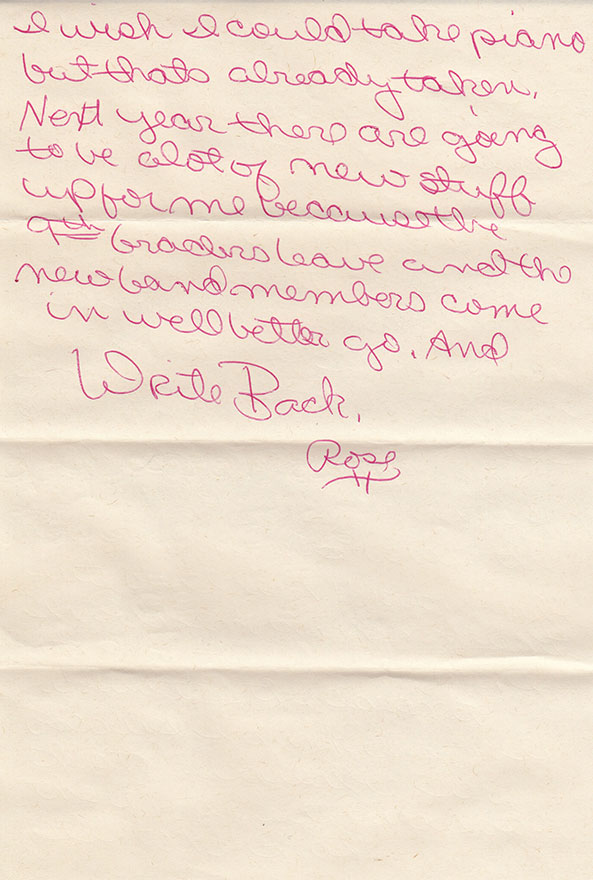 I wish I could take piano
but thats already taken.
Next year there are going
to be alot of new stuff
up for me because the
9th graders leave and the
new band members come
in well better go. And
Write Back.
Rose